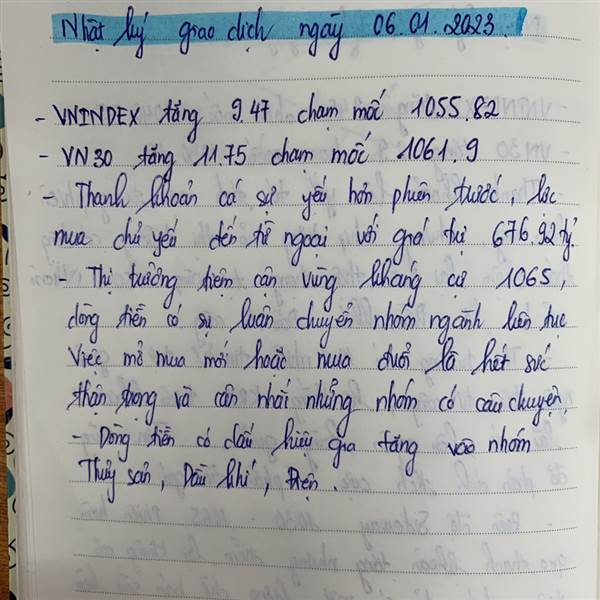 Nhật ký giao dịch ngày 06.01.2023.
- VNINDEX tăng 9.47 chạm mốc 1055.82
- VN30 tăng 11.75 chạm mốc 1061.9
- Thanh khoản có sự yếu hơn phiên trước, lực
mua chủ yếu đến từ ngoại với giá trị 676,92 tỷ.
- Thị trường tiệm cận vùng kháng cự 1065,
dòng tiền có sự luân chuyển nhóm ngành liên tục
Việc mở mua mới hoặc mua đuổi là hết sức
thận trọng và cân nhắc những nhóm có câu chuyện.
- Dòng tiền có dấu hiệu gia tăng vào nhóm
Thủy sản, Dầu khí, Điện.